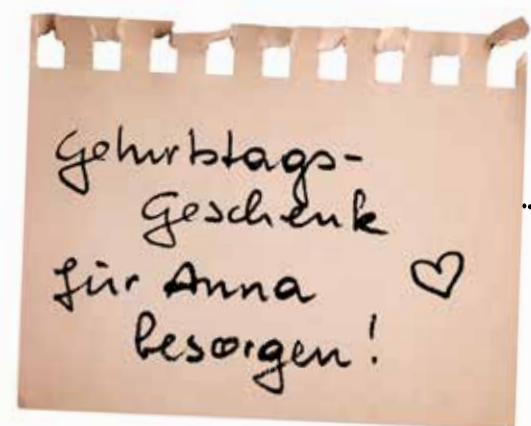 Geburtstags-
Geschenk
für Anna ♡
besorgen!